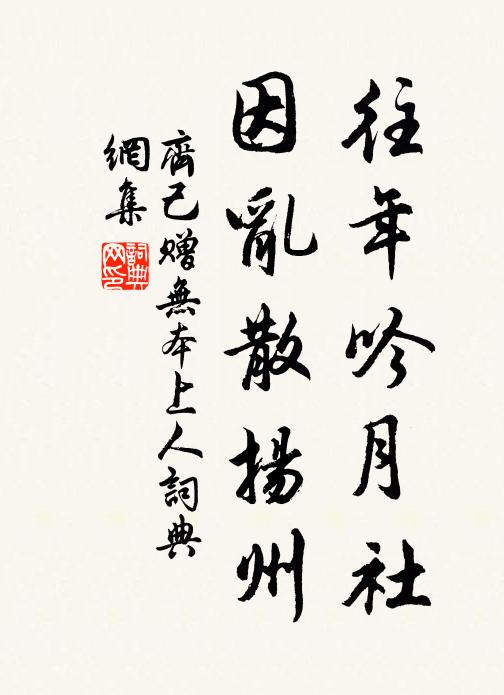 往年吟月社
因亂散揚州
齊己贈無本上人詞典
網集
詞典
网印